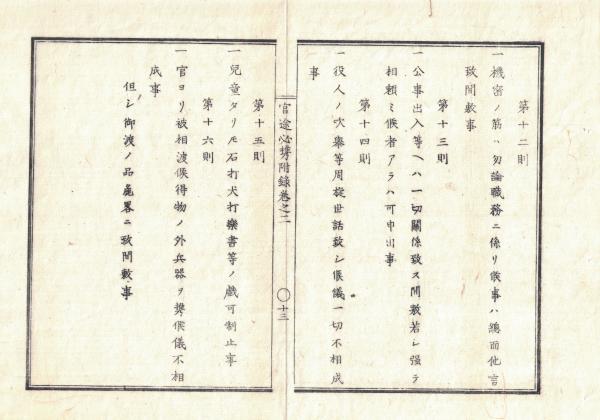 第十二則
一機密ノ筋ハ勿論職務ニ係リ候事ハ總而他言
致間敷事
第十三則
一公事出入等ヘハ一切關係致ス間敷若シ强テ
相頼ミ候者アラハ可申出事
第十四則
一役人ノ吹擧等周旋世話致シ候儀一切不相成
事
官途必携附錄卷之二
〇十三
第十五則
一兒童タリ𪜈石打犬打樂書等ノ戲可制止事
第十六則
一官ヨリ被相渡候得物ノ外兵器ヲ携候儀不相
成事
但シ御渡ノ品麁畧ニ致間敷事